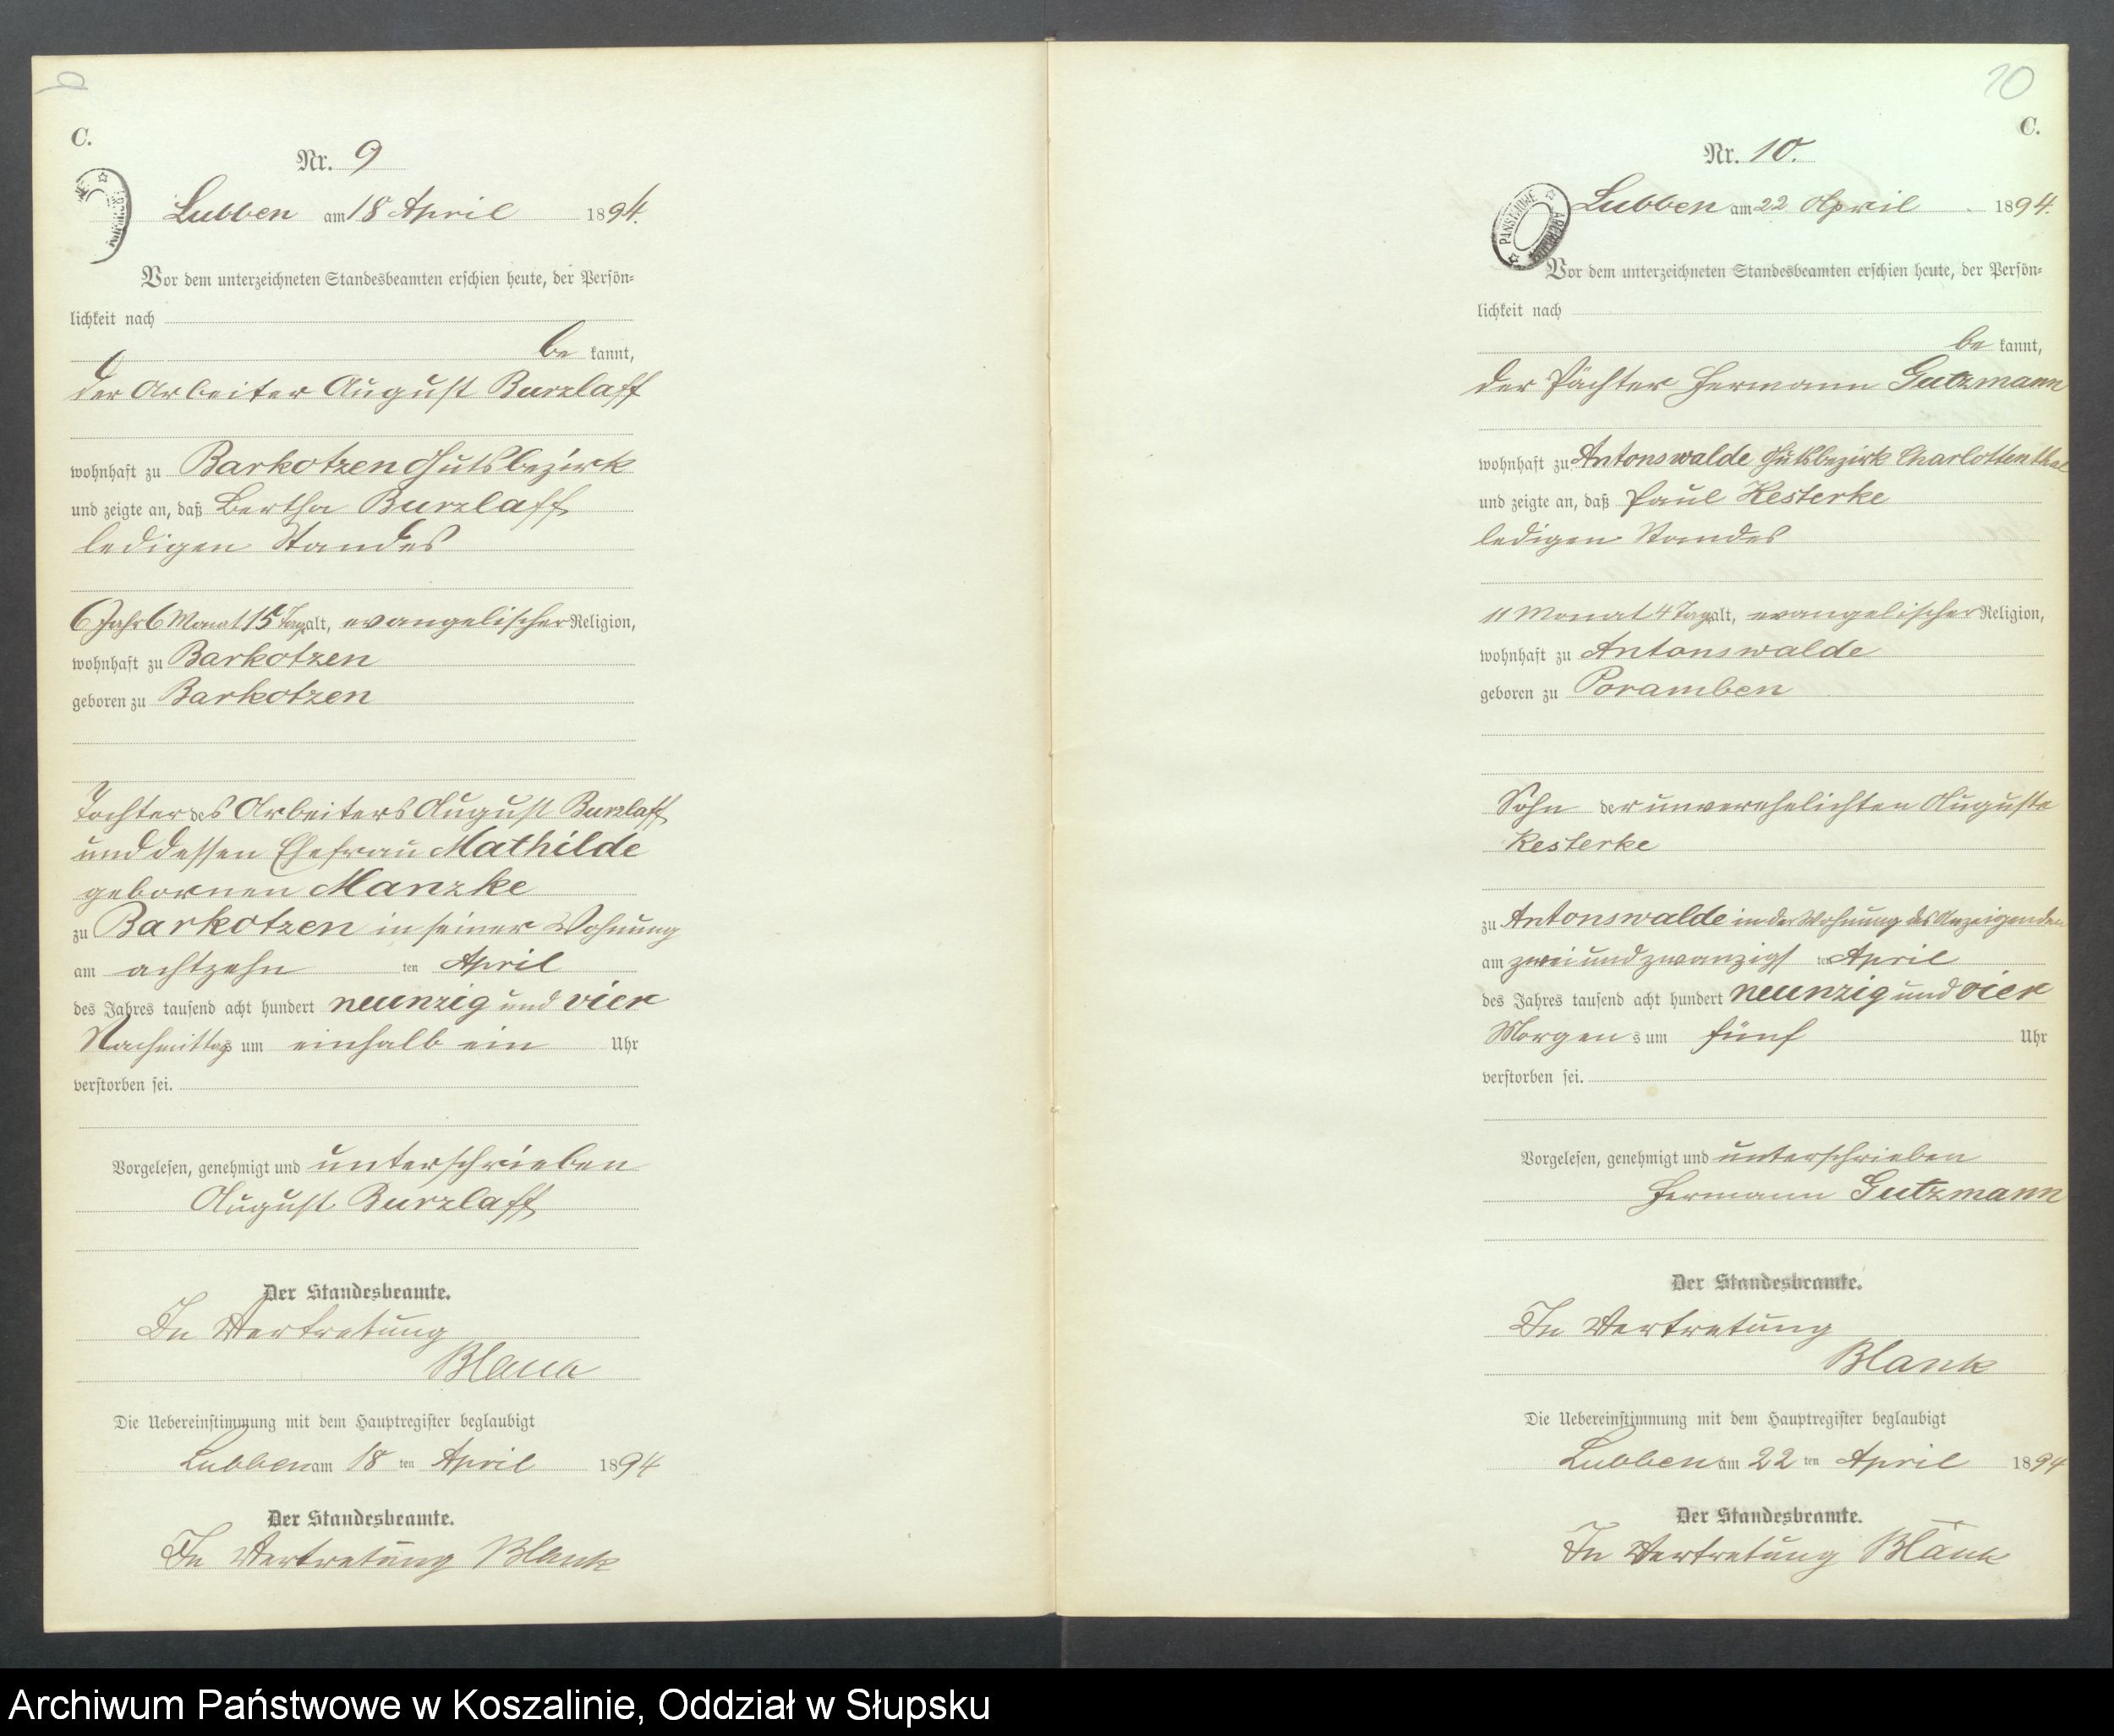 9
C.
Nr. 9
Lubben am 18 April 1894.
Vor dem unterzeichneten Standesbeamten erschien heute, der Persön-
lichkeit nach
be kannt,
der Arbeiter August Burzlaff
wohnhaft zu Barkotzen Gutsbezirk
und zeigte an, daß Bertha Burzlaff
ledigen Standes
6 Jahr 6 Monat 15 Tage alt, evangelischer Religion,
wohnhaft zu Barkotzen
geboren zu Barkotzen
Tochter des Arbeiters August Burzlaff
und dessen Ehefrau Mathilde
gebornen Manzke
zu Barkotzen in seiner Wohnung
am achtzehn ten April
des Jahres tausend acht hundert neunzig und vier
Nachmittags um einhalb ein Uhr
verstorben sei.
Vorgelesen, genehmigt und unterschrieben
August Burzlaff
Der Standesbeamte.
In Vertretung
Blank
Die Uebereinstimmung mit dem Hauptregister beglaubigt
Lubben am 18 ten April 1894
Der Standesbeamte.
In Vertretung Blank
10
C.
Nr. 10.
PAŃSTWOWE ARCHIWUM
Lubben am 22 April 1894.
Vor dem unterzeichneten Standesbeamten erschien heute, der Persön-
lichkeit nach
be kannt,
der Pächter Hermann Gutzmann
wohnhaft zu Antonswalde Gutsbezirk Charlottenthal
und zeigte an, daß Paul Kesterke
ledigen Standes
11 Monat 4 Tage alt, evangelischer Religion,
wohnhaft zu Antonswalde
geboren zu Poramben
Sohn der unverehelichten Auguste
Kesterke
zu Antonswalde in der Wohnung des Anzeigenden
am zweiundzwanzigst ten April
des Jahres tausend acht hundert neunzig und vier
Morgens um fünf Uhr
verstorben sei.
Vorgelesen, genehmigt und unterschrieben
Hermann Gutzmann
Der Standesbeamte.
In Vertretung
Blank
Die Uebereinstimmung mit dem Hauptregister beglaubigt
Lubben am 22 ten April 1894
Der Standesbeamte.
In Vertretung Blank
Archiwum Państwowe w Koszalinie, Oddział w Słupsku